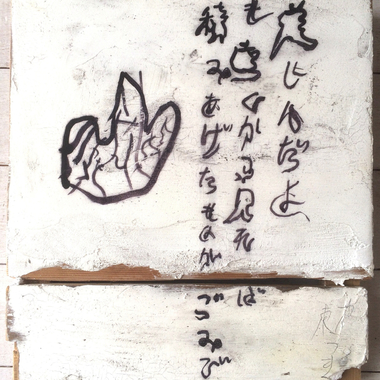 積みあげたものがゴミで
も遠くから見れば
じんだよ